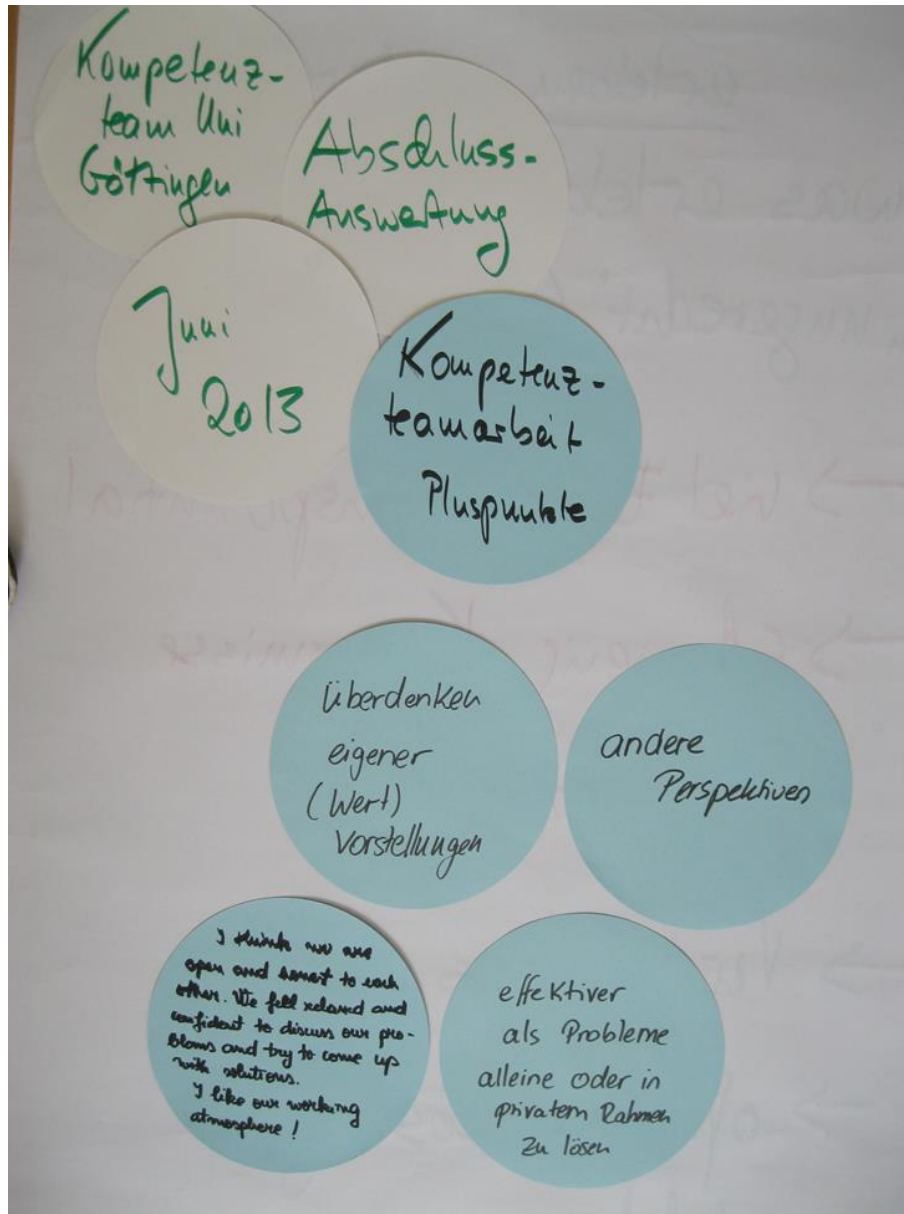 Kompetenz-
team Uni
Göttingen
Abschluss-
Auswertung
Juni
2013
Kompetenz-
teamarbeit
Pluspunkte
überdenken
eigener
(Wert)
Vorstellungen
andere
Perspektiven
I think we are
open and honest to each
other. We fell relaxed and
confident to discuss our pro-
blems and try to come up
with solutions.
I like our working
atmosphere!
effektiver
als Probleme
alleine oder in
privatem Rahmen
zu lösen